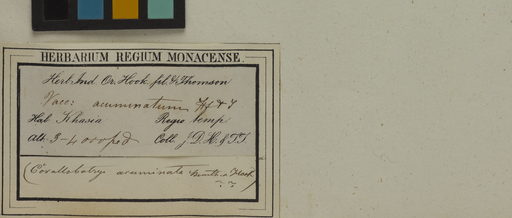 HERBARIUM REGIUM MONACENSE.
Herb. Ind. Or. Hook. fil. & Thomson
Vacc: acuminatum Hf & T
Hab. Khasia Regio temp
Alt. 3-4000 ped Coll. J.D.H. & T.T.
(Corallobotrys acuminata Benth. & Hook)